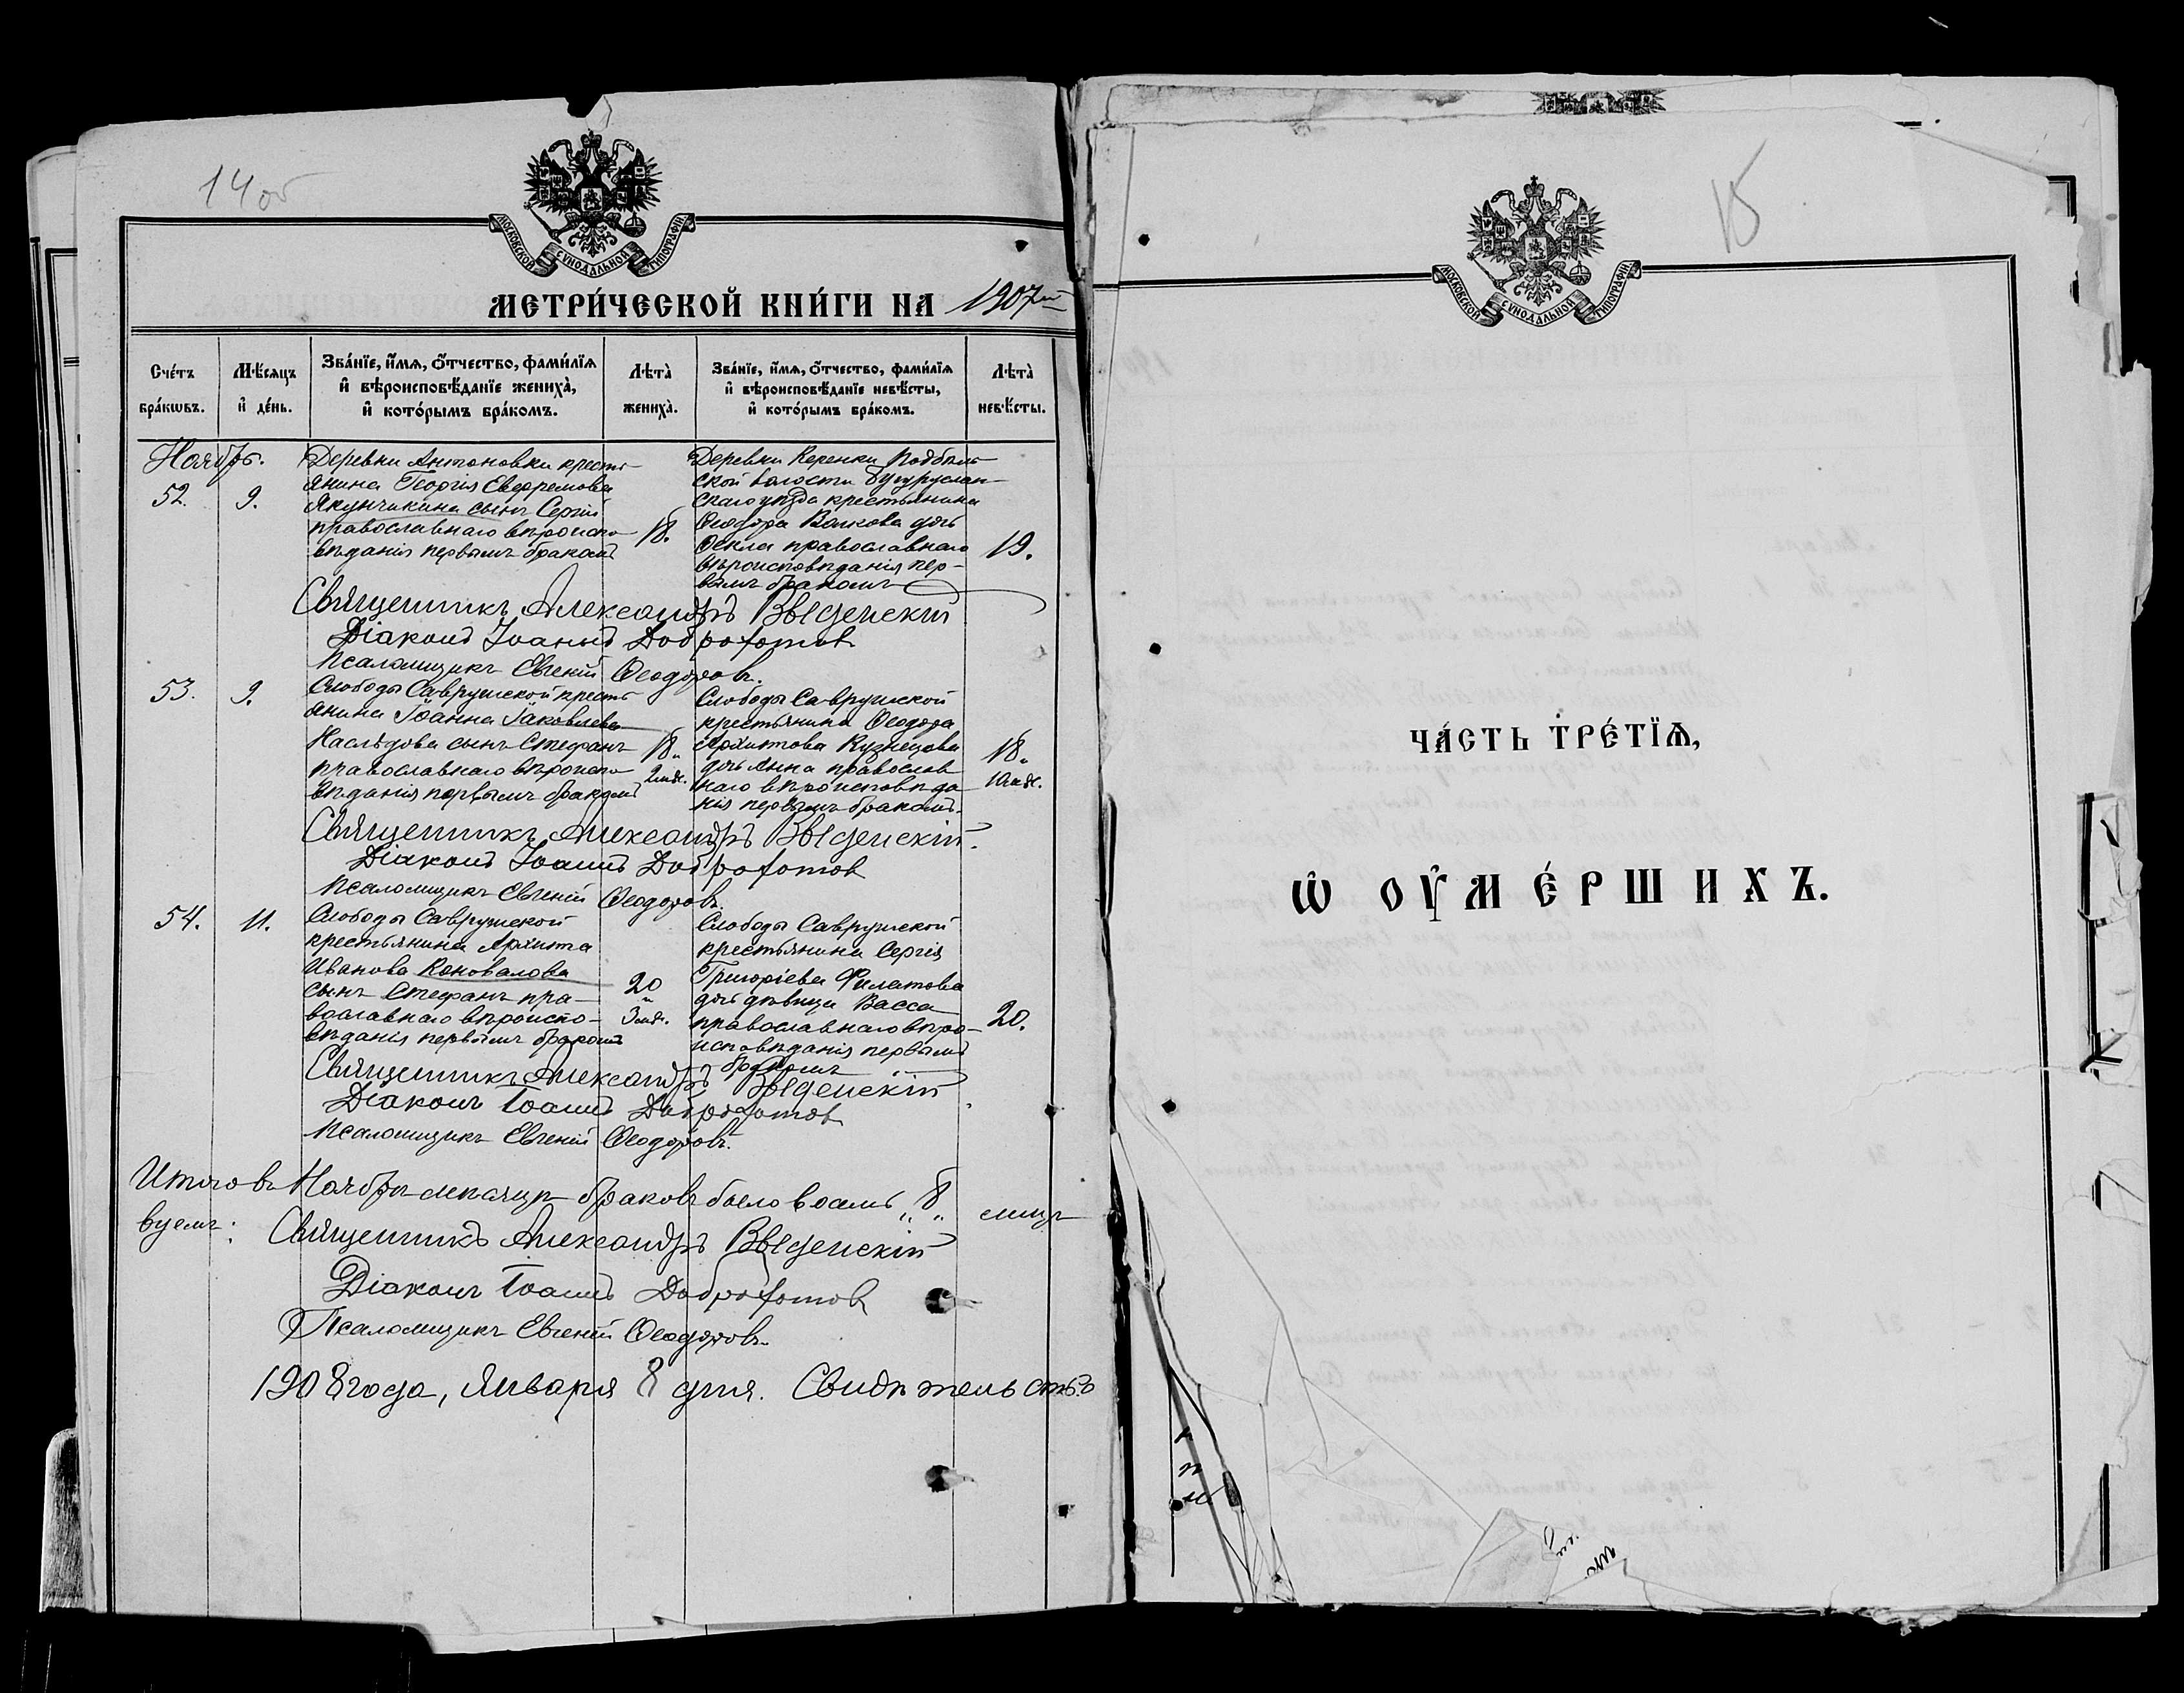 14 об
МОСКОВСКОЙ СѴНОДАЛЬНОЙ ТИПОГРАФІИ
МЕТРИ́ЧЕСКОЙ КНИ́ГИ НА 1907 й
Сче́тъ бра́кѡвъ.
Мѣ́сяцъ и҆ де́нь.
Зва́нїе, и҆́мѧ, ѻ҆́тчество, фами́лїѧ и҆ вѣроисповѣ́данїе жениха̀, и҆ кото́рымъ бра́комъ.
Лѣта̀ жениха̀.
Зва́нїе, и҆́мѧ, ѻ҆́тчество, фами́лїѧ и҆ вѣроисповѣ́данїе невѣ́сты, и҆ кото́рымъ бра́комъ.
Лѣта̀ невѣ́сты.
Ноябрь.
52. 9.
Деревни Антоновки кресть-
янина Георгія Евфремова
Якунчикина сынъ Сергій
православнаго вѣроиспо-
вѣданія первымъ бракомъ
18.
Деревни Керенки Подбѣль-
ской волости Бугуруслан-
скаго уѣзда крестьянина
Ѳеодора Волкова дочь
Ѳекла православнаго
вѣроисповѣданія пер-
вымъ бракомъ
19.
Священникъ Александръ Введенскій
Діаконъ Іоаннъ Доброхотовъ
Псаломщикъ Евгеній Ѳеодоровъ.
53. 9.
Слободы Саврушской кресть-
янина Іоанна Іаковлева
Наслѣдова сынъ Стефанъ
православнаго вѣроиспо-
вѣданія первымъ бракомъ
18.
2 мѣс.
Слободы Саврушской
крестьянина Ѳеодора
Архипова Кузнецова
дочь Анна православ-
наго вѣроисповѣда-
нія первымъ бракомъ.
18.
10 мѣс.
Священникъ Александръ Введенскій.
Діаконъ Іоаннъ Доброхотовъ
Псаломщикъ Евгеній Ѳеодоровъ.
54. 11.
Слободы Саврушской
крестьянина Архипа
Иванова Коновалова
сынъ Стефанъ пра-
вославнаго вѣроиспо-
вѣданія первымъ бракомъ
20
3 мѣс.
Слободы Саврушской
крестьянина Сергія
Григоріева Филатова
дочь дѣвица Васса
православнаго вѣро-
исповѣданія первымъ
бракомъ
20.
Священникъ Александръ Введенскій
Діаконъ Іоаннъ Доброхотовъ
Псаломщикъ Евгеній Ѳеодоровъ.
Итого въ Ноябрѣ мѣсяцѣ браковъ было восемь „8„
Священникъ Александръ Введенскій
Діаконъ Іоаннъ Доброхотовъ
Псаломщикъ Евгеній Ѳеодоровъ.
1908 года, Января 8 дня. Свидѣтельство
15
МОСКОВСКОЙ СѴНОДАЛЬНОЙ ТИПОГРАФІИ
ЧА́СТЬ ТРЕ́ТЇѦ,
Ѡ҆ ОУ҆МЕ́РШИХЪ.